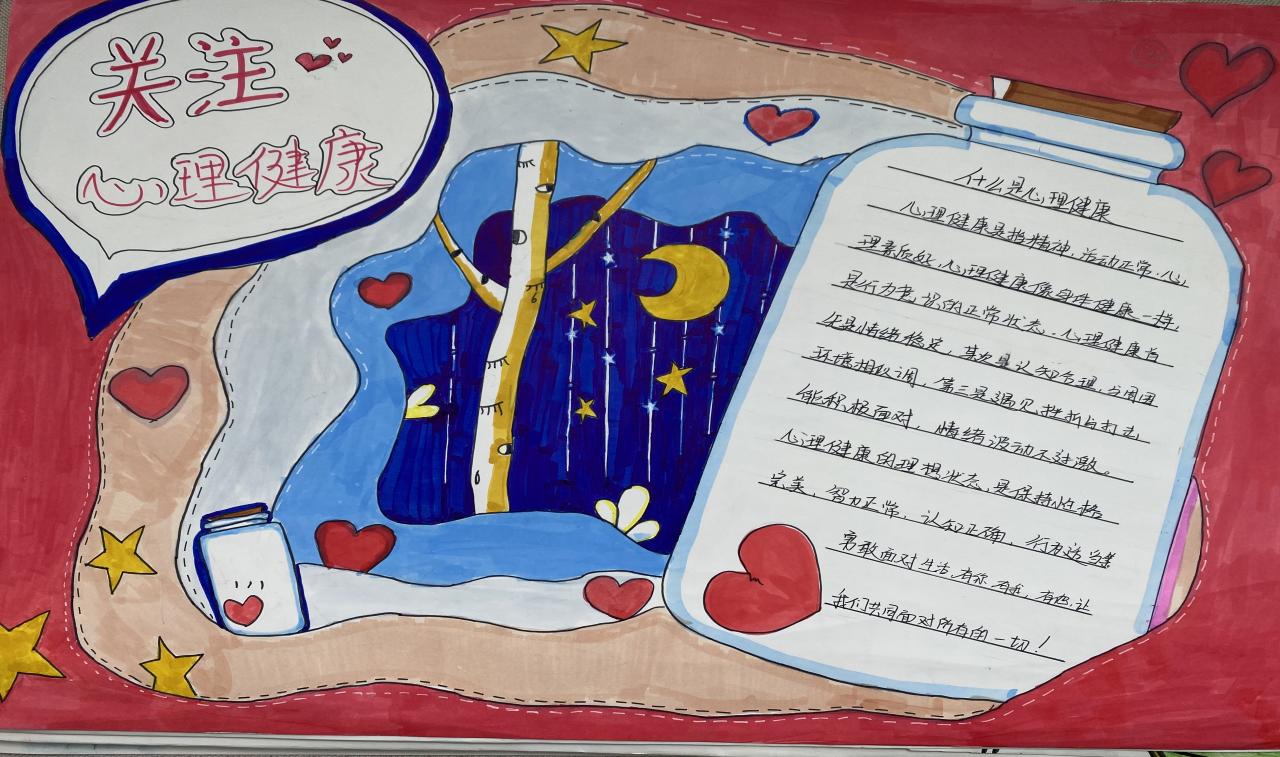 关注
心理健康
什么是心理健康
心理健康是指精神、活动正常、心
理素质好,心理健康像身体健康一样,
是行为意识的正常状态。心理健康首
先是情绪稳定,其次是认知合理,与周围
环境相协调,第三是遇见挫折与打击
能积极面对,情绪波动不过激。
心理健康的理想状态,是保持性格
完美,智力正常,认知正确,行为适当等
勇敢面对生活,有你,有我,有他,让
我们共同面对所有的一切!